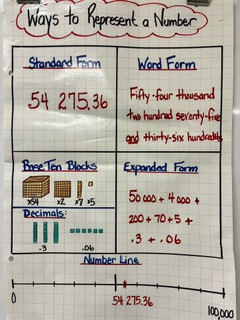 Ways to Represent a Number
Standard Form
54 275.36
Word Form
Fifty-four thousand
two hundred seventy-five
and thirty-six hundredths
Base Ten Blocks
x54 x2 x7 x5
Decimals:
.3 .06
Expanded Form
50 000 + 4 000 +
200 + 70 + 5 +
.3 + .06
Number Line
0 54 275.36 100,000